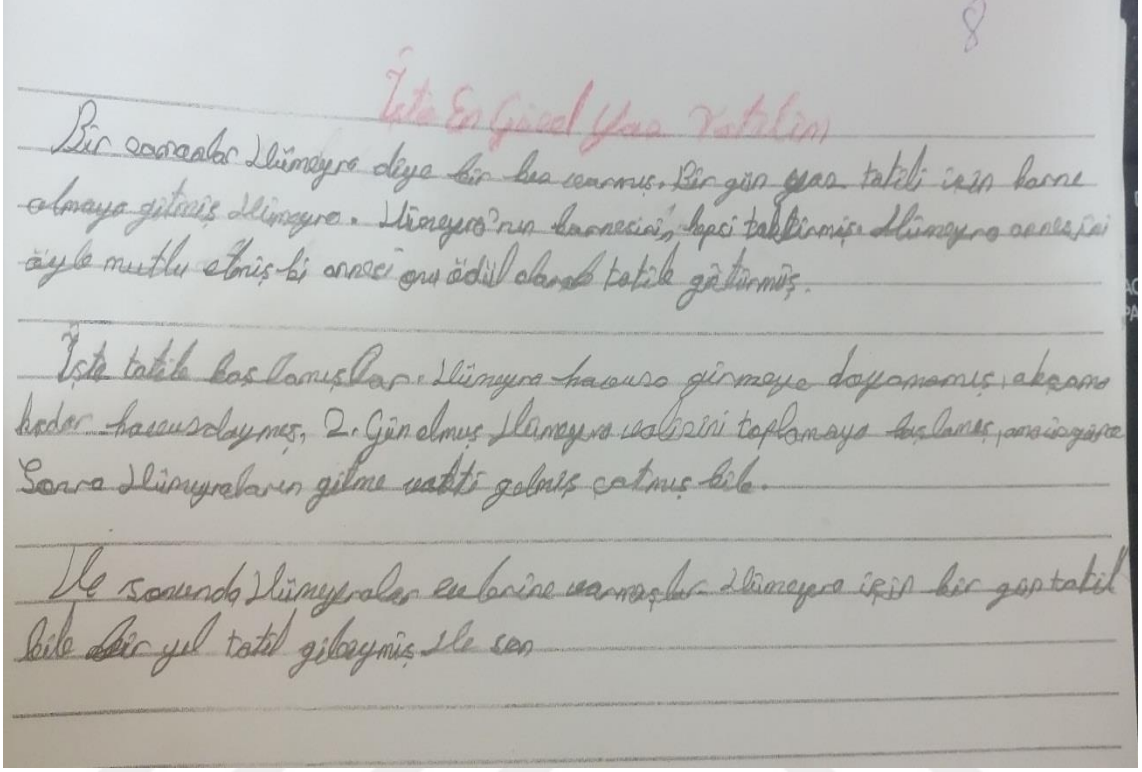 8
İşte En Güzel Yaz Tatilim
Bir zamanlar Hümeyra diye bir kız varmış. Bir gün yaz tatili için karne
almaya gitmiş Hümeyra. Hümeyra'nın karnesinin hepsi takdirmiş. Hümeyra annesini
öyle mutlu etmiş ki annesi onu ödül olarak tatile götürmüş.
İşte tatile başlamışlar. Hümeyra havuza girmeye dayanamış, akşama
kadar havuzdaymış, 2. Gün olmuş Hümeyra valizini toplamaya başlamış,
Sonra Hümeyraların gitme vakti gelmiş çatmış bile.
Ve sonunda Hümeyralar evlerine varmışlar. Hümeyra için bir gün tatil
bile bir yıl tatil gibiymiş Ve son